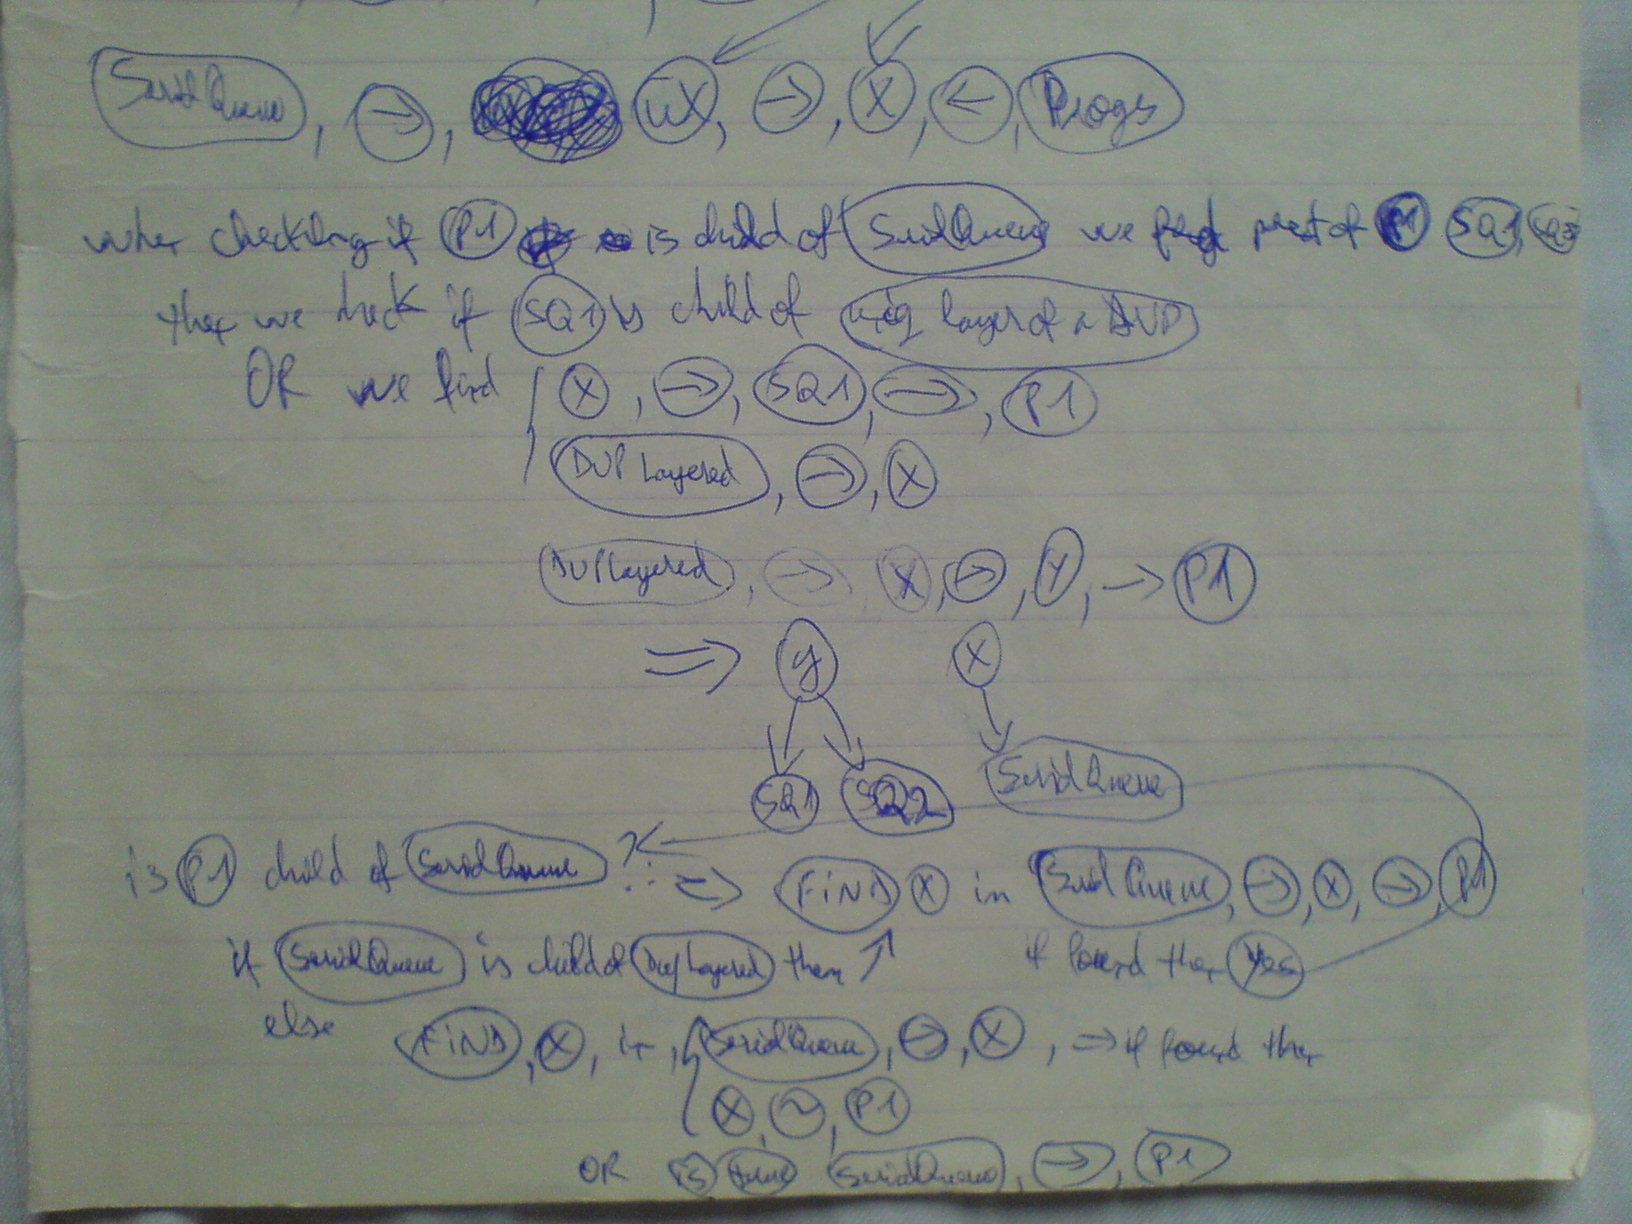 Serial Queue, →, uX, →, X, ←, Progs
when checking if P1 is child of Serial Queue we find parent of P1 SQ1, SQ2
then we check if SQ1 is child of layer of a DUP
OR we find { X, →, SQ1, →, P1
DUP Layered, →, X
DUP Layered, → X, →, Y, → P1
⇒ y X
SQ1 SQ2 Serial Queue
is P1 child of Serial Queue ? ∴ ⇒ FIND X in Serial Queue, →, X, →, P1
if Serial Queue is child of Dup Layered then ↗ if found then Yes
else FIND, X, in, { Serial Queue, →, X, ⇒ if found then
X, ~, P1
OR is true Serial Queue, →, P1